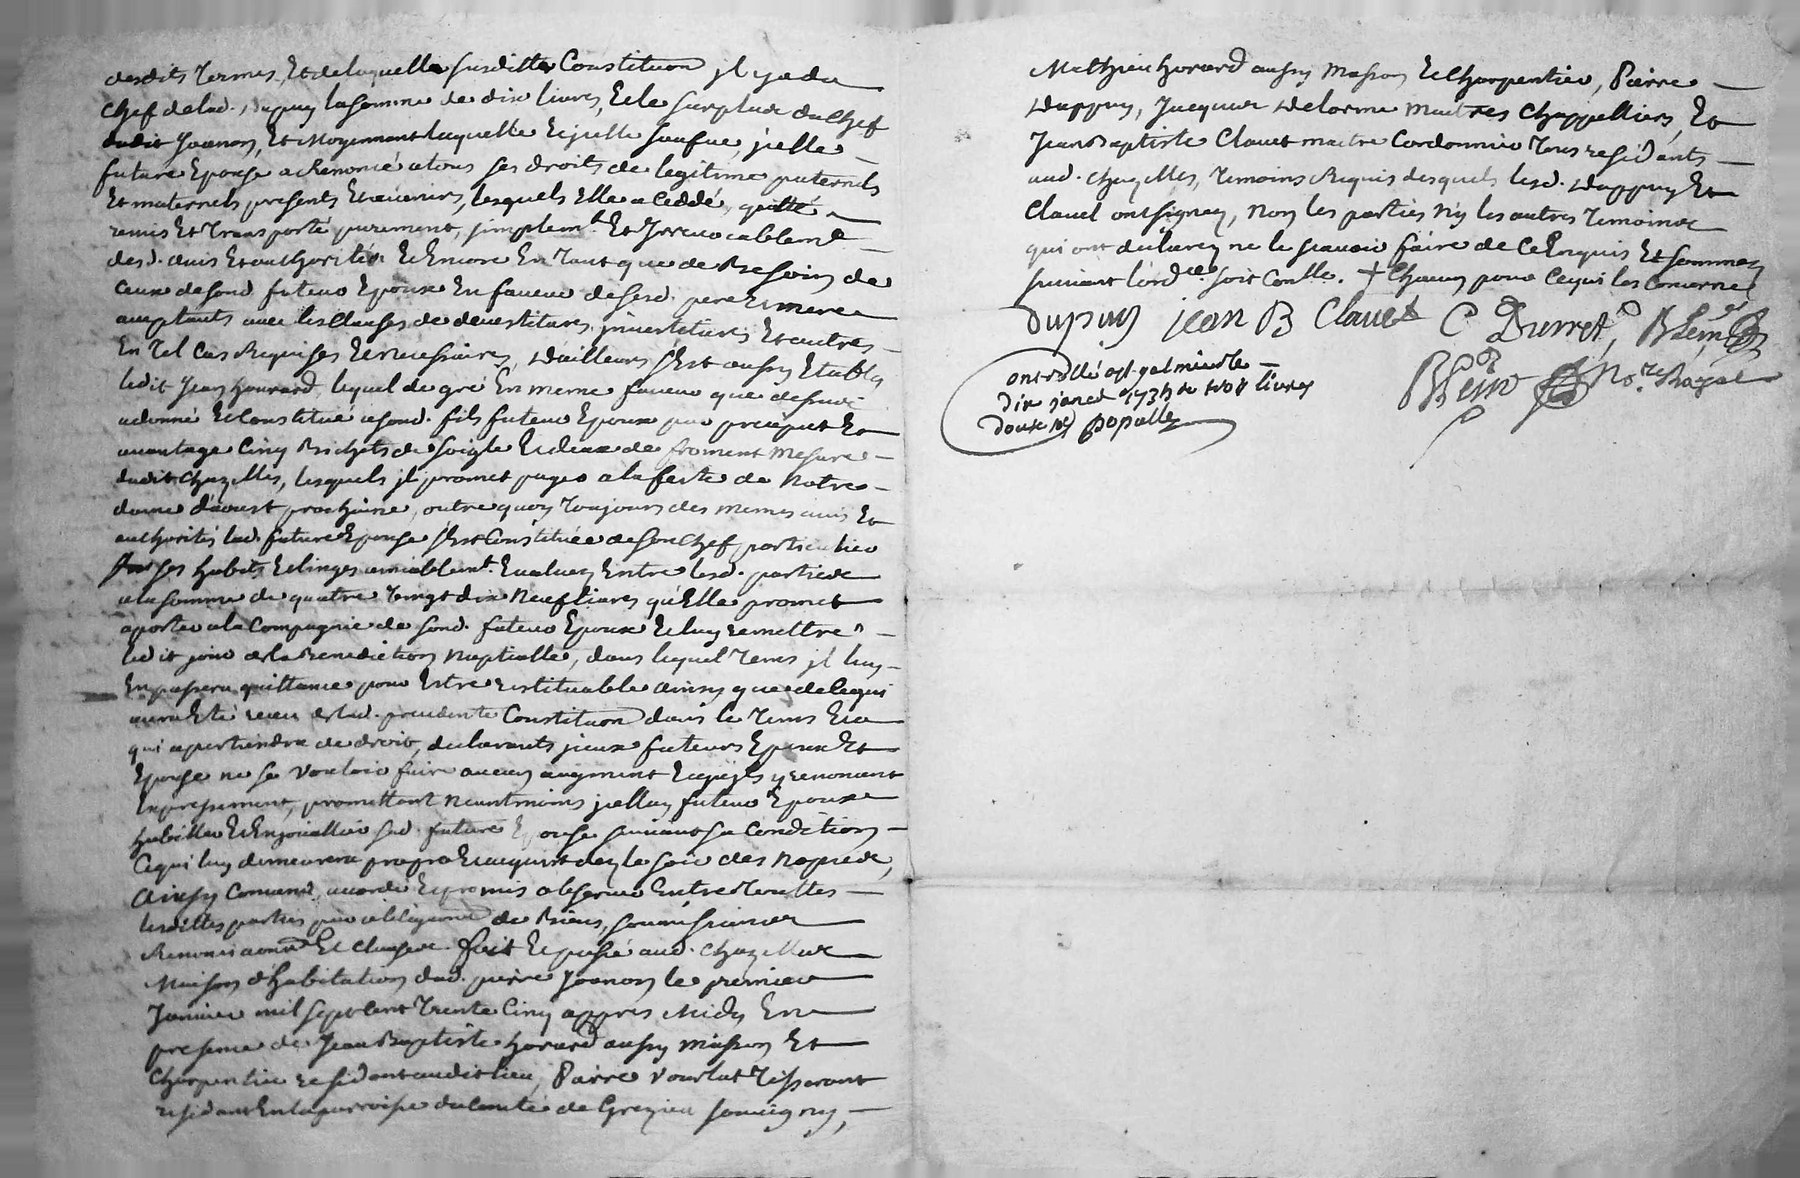 desdits termes, Et de laquelle susditte Constituon jl y a du
chef de lad. dupuy la somme de dix livres, Et le surplux du chef
dudit Joanon, Et Moyennant laquelle icjcelle jcelle
future Epouse a Renoncé a tous ses droits de legitime paternels
Et maternels presents Et avenirs, lesquels Elle a Ceddé, quitté
remis Et Transporté purement, simplemt. Et Jrrevocablemt
desd. avis Et authorités Et Encore En Tant que de Besoin de
ceux de sond. futeur Epoux En faveur de sesd. pere Et mere
acceptants avec les Clauses de devestitures, jnvestitures Et autres
En Tel Cas Requises Et necessaires, d'ailleurs s'Est aussy Etably
ledit Jean honrard, lequel de gré En meme faveur que dessus
a donné Et Constitué a sond. fils futeur Epoux par preciput Et
avantage Cinq Bichets de soigle Et deux de froment mesure
dudit Chazelles, lesquels jl promet payer a la feste de Notre
dame d'aoust prochaine, outre quoy Toujours des memes avis Et
authorités lad. future Epouse s'Est Constituée de son chef particulier
ses habits Et linges amiablemt. Evaluez Entre lesd. parties
a la somme de quatre Vingt dix Neuf livres qu'Elle promet
aporter a la Compagnie de sond. futeur Epoux Et luy remettre
ledit jour de la Benediction Nuptialle, dans lequel Tems jl luy
En passera quittance pour Estre restituable ainsy que de le qui
aura Eté receu de lad. precedente Constituon dans le Tems Et a
qui apartiendra de droit, declarants jceux futeurs Epoux Et
Epouse ne se vouloir faire aucun augment Et y renoncent
Expressement, promettant neantmoins jcelluy futeur Epoux
habiller Et Enjouailler sad. future Epouse suivant sa Condition
Ce qui luy demeurera propre Et acquis dez le soir des Nopces,
Ainsy Convenu, accordé Et promis observer Entre
lesdittes parties par obligaon de Biens, soumissions
Renonciaons Et Clauses. fait Et passé aud. Chazelles
Maison d'habitation dud. pierre Joanon le premier
Janvier mil sept Cent Trente Cinq appres Midy En
presence de Jean Baptiste honrard aussy masson Et
Charpentier residant audit lieu, Pierre Tisserant
residant En la parroisse du Comté de Grezieu souvigny,
Mathieu honrard aussy Masson Et Charpentier, Pierre
Duppuy, Jacques Delorme maitres Chappelliers, Et
Jean Baptiste Clauet maitre Cordonnier Tous residants
aud. Chazelles, Temoins Requis desquels lesd. Duppuy Et
Clauet ont signez, Non les parties N'y les autres Temoins
qui ont declarez ne le scavoir faire de Ce Enquis Et sommez
suivant l'ordce. soit Conlle. + Chacun pour Ce qui les Concerne
Dupuy jean B Clauet C Durret,
Controllé a st galmier le
dix janer 1735 Re trois livres
douze s Populle
No.re Royal